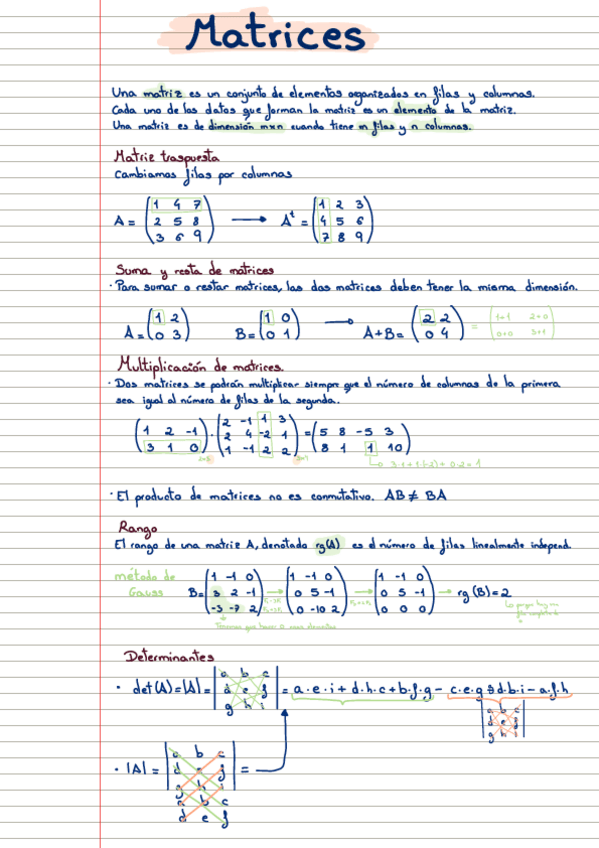 Matrices
Una matriz es un conjunto de elementos organizados en filas y columnas.
Cada uno de los datos que forman la matriz es un elemento de la matriz.
Una matriz es de dimensión m×n cuando tiene m filas y n columnas.
Matriz traspuesta
Cambiamos filas por columnas
A = (1 4 7 → Aᵗ = (1 2 3
2 5 8 4 5 6
3 6 9) 7 8 9)
Suma y resta de matrices
· Para sumar o restar matrices, las dos matrices deben tener la misma dimensión.
A = (1 2 B = (1 0 → A+B = (2 2 = (1+1 2+0
0 3) 0 1) 0 4) 0+0 3+1)
Multiplicación de matrices.
· Dos matrices se podrán multiplicar siempre que el número de columnas de la primera
sea igual al número de filas de la segunda.
(1 2 -1 · (2 -1 1 3 = (5 8 -5 3
3 1 0) 2 4 -2 1 8 1 1 10)
1 -1 2 2)
3·1+1·(-2)+0·2=1
· El producto de matrices no es conmutativo. AB ≠ BA
Rango
El rango de una matriz A, denotado rg(A) es el número de filas linealmente independ.
método de
Gauss
B = (1 -1 0 → (1 -1 0 → (1 -1 0 → rg (B) = 2
3 2 -1 0 5 -1 0 5 -1
-3 -7 2) 0 -10 2) 0 0 0)
Tenemos que hacer 0 esos elementos
Determinantes
· det(A) = |A| = |a b c = a·e·i + d·h·c + b·f·g - c·e·g - d·b·i - a·f·h
d e f
g h i|
a b c
d e f
g h i
· |A| = |a b c =
d e f
g h i|
a b c
d e f